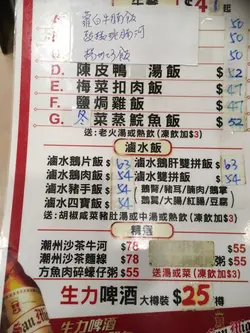 A. 蘿白牛腩飯
豉椒炒腩河
揚州炒飯
D. 陳皮鴨 湯飯 $52
E. 梅菜扣肉飯 $47
F. 鹽焗雞飯 $47
G. 冬菜蒸鯇魚飯 $52
送：老火湯或熱飲(凍飲加$3)
滷水飯
滷水鵝片飯 $63 滷水鵝肝雙拼飯 $63
滷水鵝肉飯 $54 滷水雙拼飯 $54
滷水豬手飯 $54 (鵝腎/豬耳/腩肉/鵝掌
滷水四寶飯 $54 鵝翼/大腸/紅腸/豆腐)
送：胡椒咸菜豬肚湯或中湯或熱飲(凍飲加$3)
精選
潮州沙茶牛河 $78 $55
潮州沙茶麵線 $78 粥 $55
方魚肉碎蠔仔粥 $55 送湯或菜(凍飲加$3)
生力啤酒 大樽裝 $25 樽
San Mi